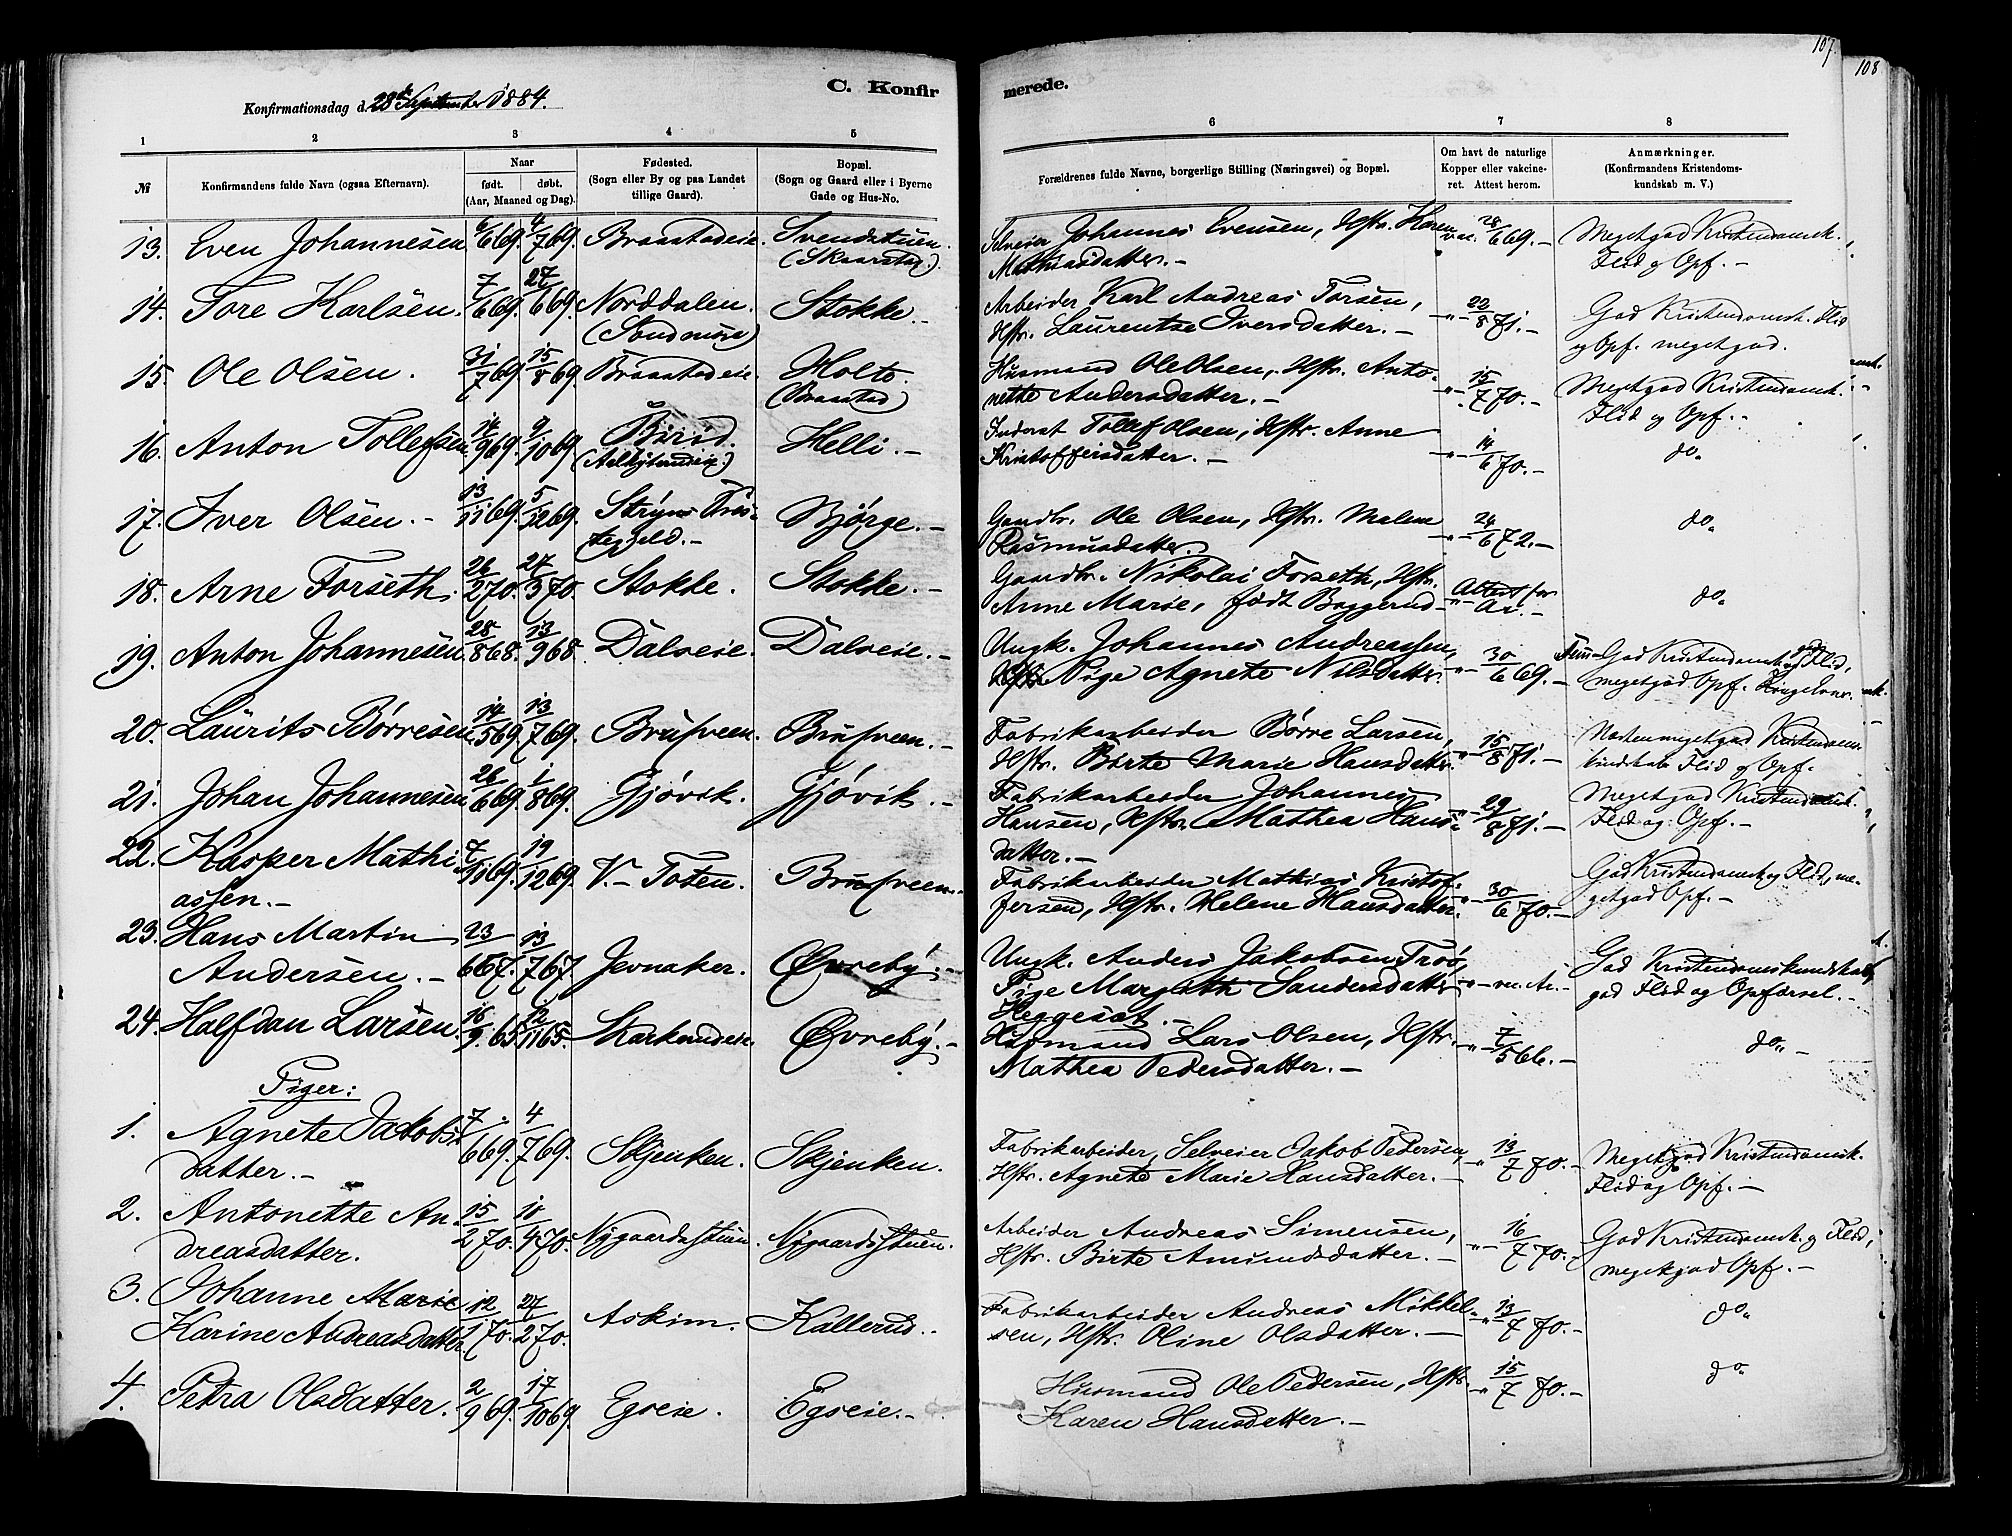 107.
108
Konfirmationsdag d. 28de September 1884.
C. Konfir
merede.
1 2 3 4 5
6 7 8
№
Konfirmandens fulde Navn (ogsaa Efternavn).
Naar
født. døbt.
(Aar, Maaned og Dag).
Fødested.
(Sogn eller By og paa Landet
tillige Gaard).
Bopæl.
(Sogn og Gaard eller i Byerne
Gade og Hus-No.
Forældrenes fulde Navne, borgerlige Stilling (Næringsvei) og Bopæl.
Om havt de naturlige
Kopper eller vakcine-
ret. Attest herom.
Anmærkninger.
(Konfirmandens Kristendoms-
kundskab m. V.)
13. Even Johannesen 6/6 69. 4/7 69. Braastadeie. Svendstuen. (Skaarstad.)
Selveier Johannes Evensen, Hstr. Karen
Mathiasdatter. – vac. 28/6 69. –
Megetgod Kristendomsk.
Flid og Opf. –
14. Tore Karlsen. 7/6 69. 27/6 69. Norddalen. (Søndmøre) Stokke. –
Arbeider Karl Andreas Torsen,
Hstr. Laurentse Iversdatter. – -"- 22/8 71. –
God Kristendomsk. Flid
og Opf. megetgod.
15. Ole Olsen. 31/7 69. 15/8 69. Braastadeie. Holte. (Braastad)
Husmand Ole Olsen, Hstr. Anto-
nette Andersdatter. – -"- 15/7 70. –
Megetgod Kristendomsk.
Flid og Opf. –
16. Anton Tollefsen. 14/9 69. 9/10 69. Birid. Helli. –
Inderst Tollef Olsen, Hstr. Anne
Kristoffersdatter. – -"- 14/6 70. –
do.
17. Iver Olsen. – 13/11 69. 5/12 69. Stryns Præs-
tegjeld. – Bjørge. –
Gaardbr. Ole Olsen, Hstr. Malene
Rasmusdatter. -"- 24/6 72. –
do.
18. Arne Forseth. 26/2 70. 27/3 70. Stokke. Stokke. –
Gaardbr. Nikolai Forseth, Hstr.
Anne Marie, født Baggerud -"- Attest for
Ar. –
do.
19. Anton Johannesen. 28/8 68. 13/9 68. Dalseie. Dalseie. –
Ungk. Johannes Andreassen,
Pige Agnete Nilsdatter. -"- 30/6 69. –
God Kristendomsk. og Flid,
megetgod Opf.
20. Laurits Børresen 14/5 69. 13/7 69. Brufveen. Brufveen. –
Fabrikarbeider Børre Larsen,
Hstr. Birte Marie Hansdatter. -"- 15/8 71. –
Næsten megetgod Kristendoms-
kundskab Flid og Opf.
21. Johan Johannesen 26/6 69. 1/8 69. Gjøvik. Gjøvik. –
Fabrikarbeider Johannes
Hansen, Hstr. Mathea Hans-
datter. – -"- 29/8 71. –
Megetgod Kristendomsk.
Flid og Opf. –
22. Kasper Mathi
assen. – 7/11 69. 19/12 69. V. Toten. Brufveen. –
Fabrikarbeider Mathias Kristof-
fersen, Hstr. Helene Hansdatter. -"- 30/6 70. –
God Kristendomsk. og Flid, me-
getgod Opf. –
23. Hans Martin
Andersen. – 23/6 67. 13/7 67. Jevnaker. Øvreby. –
Ungk. Anders Jakobsen Trø,
Pige Margith Sandersdatter
Heggeset. –
God Kristendomskundskab,
god Flid og Opførsel. –
24. Halfdan Larsen. 16/9 65. 12/11 65. Skarkerudeie. Øvreby. –
Husmand Lars Olsen, Hstr.
Mathea Pedersdatter. – -"- 7/5 66. –
do. –
Piger:
1. Agnete Jakobs-
datter. – 7/6 69. 4/7 69. Skjenken. Skjenken.
Fabrikarbeider, Selveier Jakob Pedersen,
Hstr. Agnete Marie Hansdatter. – -"- 13/7 70. –
Megetgod Kristendomsk.
Flid og Opf. –
2. Antonette An-
dreasdatter. 15/2 70. 10/4 70. Nygaardsstuen. Nygaardsstuen.
Arbeider Andreas Simensen,
Hstr. Birte Amundsdatter. – -"- 16/7 70. –
God Kristendomsk. og Flid,
megetgod Opf. –
3. Johanne Marie
Karine Andreasdatter 12/1 70. 27/2 70. Askim. Kallerud.
Fabrikarbeider Andreas Mikkel-
sen, Hstr. Oline Olsdatter. – -"- 13/7 70. –
do.
4. Petra Olsdatter. 2/9 69. 17/10 69. Egseie. Egseie. –
Husmand Ole Pedersen, Hstr.
Karen Hansdatter. – -"- 15/7 70. –
do.